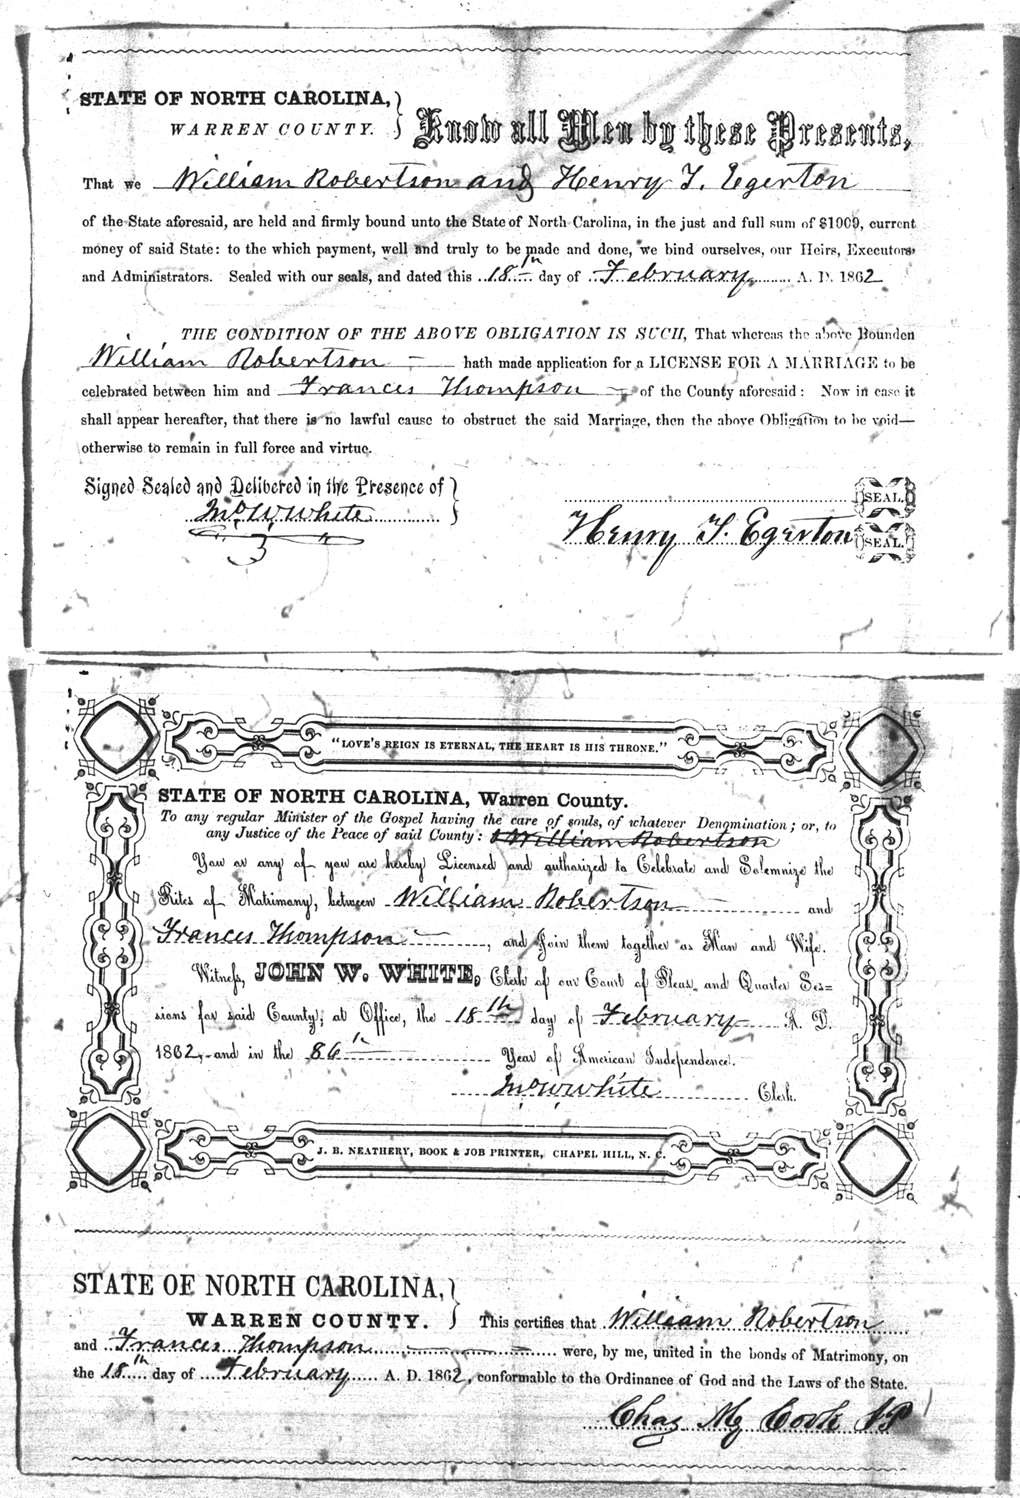 STATE OF NORTH CAROLINA,
WARREN COUNTY.
Know all Men by these Presents,
That we William Robertson and Henry T. Egerton
of the State aforesaid, are held and firmly bound unto the State of North Carolina, in the just and full sum of $1000, current
money of said State: to the which payment, well and truly to be made and done, we bind ourselves, our Heirs, Executors
and Administrators. Sealed with our seals, and dated this 18th day of February A. D. 1862
THE CONDITION OF THE ABOVE OBLIGATION IS SUCH, That whereas the above Bounden
William Robertson hath made application for a LICENSE FOR A MARRIAGE to be
celebrated between him and Frances Thompson of the County aforesaid: Now in case it
shall appear hereafter, that there is no lawful cause to obstruct the said Marriage, then the above Obligation to be void—
otherwise to remain in full force and virtue.
Signed Sealed and Delivered in the Presence of
SEAL.
Jno W White
Henry T. Egerton SEAL.
"LOVE'S REIGN IS ETERNAL, THE HEART IS HIS THRONE."
STATE OF NORTH CAROLINA, Warren County.
To any regular Minister of the Gospel having the care of souls, of whatever Denomination; or, to
any Justice of the Peace of said County: William Robertson
You or any of you are hereby Licensed and authorized to Celebrate and Solemnize the
Rites of Matrimony, between William Robertson and
Frances Thompson, and Join them together as Man and Wife.
Witness, JOHN W. WHITE, Clerk of our Court of Pleas and Quarter Ses=
sions for said County, at Office, the 18th day of February A. D.
1862, and in the 86th Year of American Independence.
Jno W White Clerk.
J. B. NEATHERY, BOOK & JOB PRINTER, CHAPEL HILL, N. C.
STATE OF NORTH CAROLINA,
WARREN COUNTY.
This certifies that William Robertson
and Frances Thompson were, by me, united in the bonds of Matrimony, on
the 18th day of February A. D. 1862, conformable to the Ordinance of God and the Laws of the State.
Chas My Cook JP